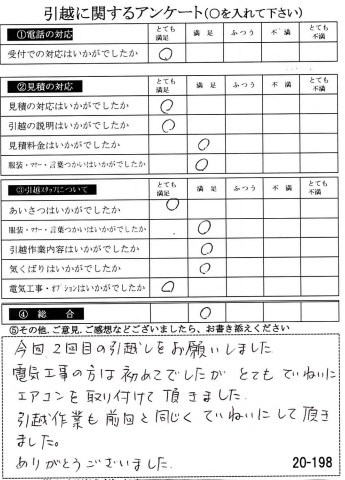 引越に関するアンケート(○を入れて下さい)
①電話の対応 とても満足 満足 ふつう 不満 とても不満
受付での対応はいかがでしたか ○
②見積の対応 とても満足 満足 ふつう 不満 とても不満
見積の対応はいかがでしたか ○
引越の説明はいかがでしたか ○
見積料金はいかがでしたか ○
服装・マナー・言葉つかいはいかがでしたか ○
③引越スタッフについて とても満足 満足 ふつう 不満 とても不満
あいさつはいかがでしたか ○
服装・マナー・言葉つかいはいかがでしたか ○
引越作業内容はいかがでしたか ○
気くばりはいかがでしたか ○
電気工事・オプションはいかがでしたか ○
④ 総 合 ○
⑤その他、ご意見、ご感想などございましたら、お書き添えください
今回2回目の引越しをお願いしました
電気工事の方は初めてでしたがとてもていねいに
エアコンを取り付けて頂きました。
引越作業も前回と同じくていねいにして頂き
ました。
ありがとうございました。
20-198